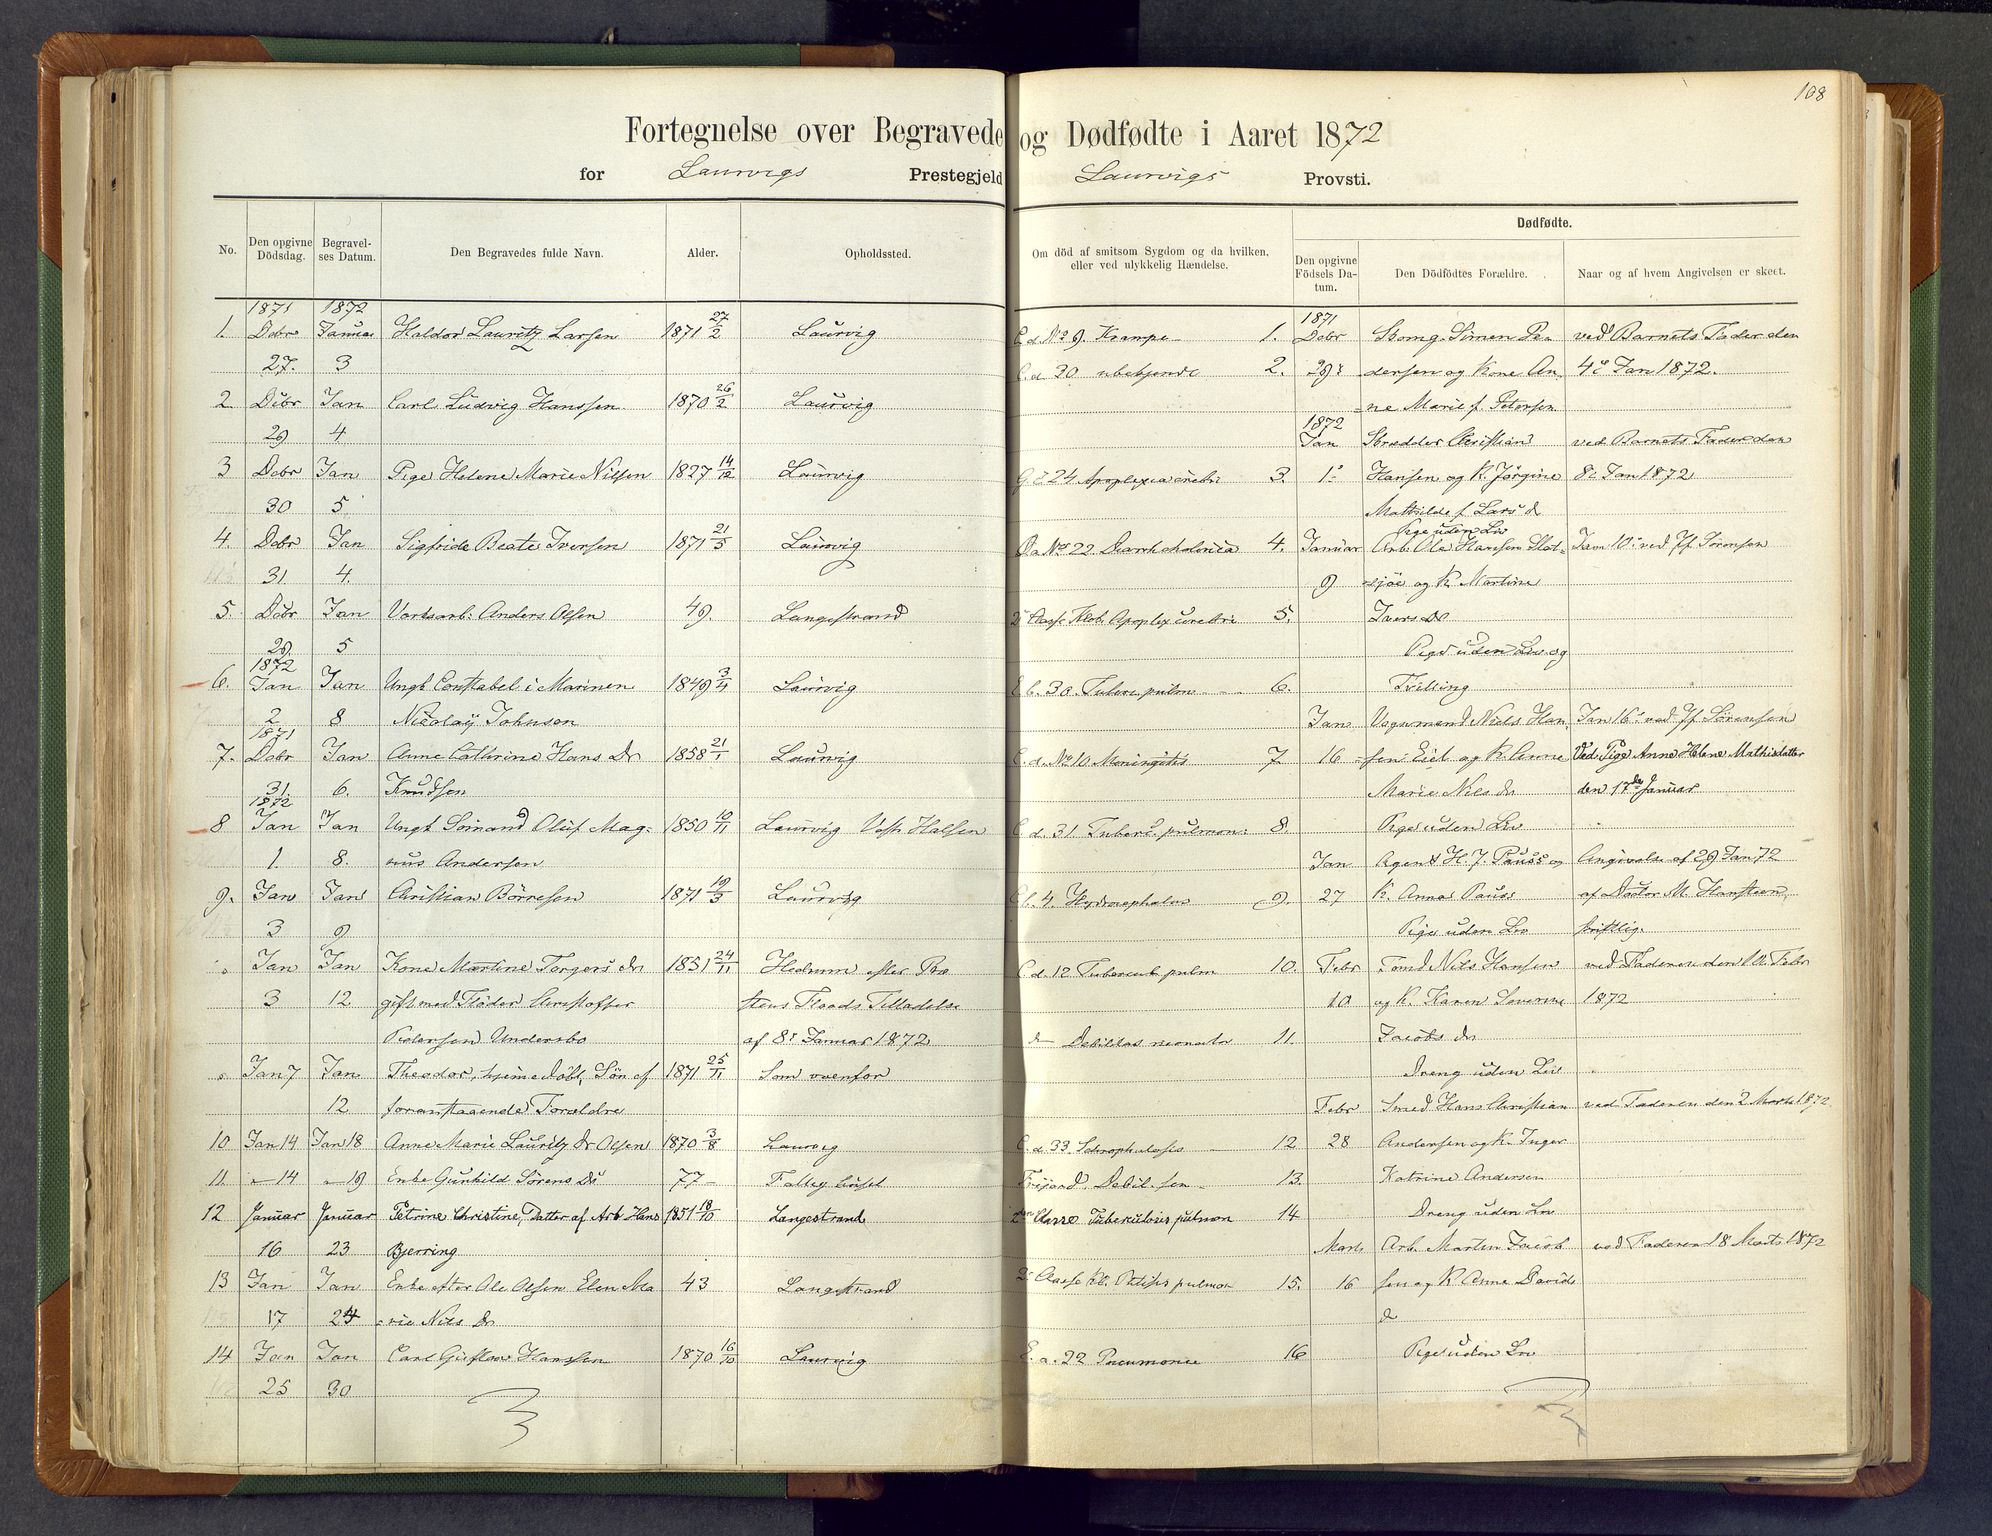 108
Fortegnelse over Begravede og Dødfødte i Aaret 1872
for Laurvigs Prestegjeld Laurvigs Provsti.
No. Den opgivne Dödsdag. Begravelses Datum. Den Begravedes fulde Navn. Alder. Opholdssted.
1871 1872
1. Debr Januar Haldor Lauritz Larsen 1871 27/2 Laurvig
27. 3
2 Debr Jan Carl Ludvig Hanssen 1870 26/2 Laurvig
29 4
3 Debr Jan Pige Helene Marie Nilsen 1827 14/12 Laurvig
30 5
4. Debr Jan Sigfride Beate Iversen 1871 21/5 Laurvig
31 4.
5. Debr Jan Anders Olsen 49. Langestrand
29. 5
1872
6. Jan Jan Ungk Constabel i Marinen 1849 3/4 Laurvig
2 8 Nicolay Johnson
1871
7. Debr Jan Anne Cathrine Hans Dr 1858 21/1 Laurvig
31. 6. Knudsen
1872
8 Jan Jan Ungk Sømand Oluf Mag- 1850 10/11 Laurvig Vestr Halsen
1. 8. nus Andersen
9. Jan Jan Christian Börresen 1871 19/3 Laurvig
3 9
Jan Jan Kone Martine Torgers dr 1851 24/11 Hedrum efter Pa
3 12 gift med Fløder Christoffer stens Floods Tilladelse
Pedersen Undersbo af 8s Januar 1872
Jan 7 Jan Theodor, hjemedöbt, Sön af 1871 25/11 Som ovenfor
12 foranstaaende Forældre
10 Jan 14 Jan 18 Anne Marie Lauritz Dr Olsen 1870 3/8 Laurvig
11. " 14 " 19 Enke Gunhild Sörens Dr 77 Fattighuset
12 Januar Januar Petrine Christine, Datter af Arb Hans 1851 18/10 Langestrand
16 23 Bjerring
13 Jan Jan Enke efter Ole Olsen Elen Ma 43 Langestrand
17 24 rie Nils Dr
14 Jan Jan Carl Gustav Hanssen 1870 16/10 Laurvig
25 30
Om död af smitsom Sygdom og da hvilken, eller ved ulykkelig Hændelse. Dødfødte.
Den opgivne Födsels Datum. Den Dödfödtes Forældre. Naar og af hvem Angivelsen er skeet.
1871
C d No 9. Krampe 1. Debr Simen Pe- ved Barnets Fader den
C. d 30 ubekjendt 2. 29 dersen og Kone An- 4 Jan 1872.
ne Marie f. Petersen
1872
Jan Skrædder Christian ved Barnets Fader den
24 Apoplexia cerebri 3. 1 Hansen og K. Jörgine 8 Jan 1872
Mathilde f. Lars d
Pige uden Liv
No 22 4. Januar Arb. Ole Hansen Jan 10 ved Jf Sörensen
9 og K Martine
2 Classe Apoplex cerebri 5. Ivers Dr
Pige uden Liv og
30. Tuberc pulm 6. Tvilling
Jan Vognmand Niels Han Jan 16 ved Jf. Sörensen
C. d. No 10 Meningitis 7 16 sen Eiet og K. Anne Ved Pige Anne Helene Mathisdatter
Marie Nils dr den 17de Januar
C. d. 31. Tuberc. pulmon: 8. Pige uden Liv
Jan Agent H. J. Pauss og Angivelse af 29 Jan 72
4. Hydrocephalus 9. 27 K. Anna Pauss af Doctor M. Hansteen
Pige uden Liv skriftlig.
C d. 12 Tubercul. pulm 10. Febr Tømd Nils Hansen ved Faderen den Febr
10 og K. Karen Severine 1872
Debilitas neonator 11. Jacobs dr
Dreng uden Liv
Febr Smed Hans Christian ved Faderen den 2 Marts 1872
C. d 33 Scrophulosis 12 28 Andersen og K. Inger
Debil. sen 13. Katrine Andersen
2den Classe Tuberkulosis pulmon 14 Dreng uden Liv
Marts Arb. Morten Jacob ved Faderen 18 Marts 1872
2 Classe Ptisis pulmon 15. 16 sen og K Anne Davids
d
E. a. 22 Pneumonie 16 Pige uden Liv